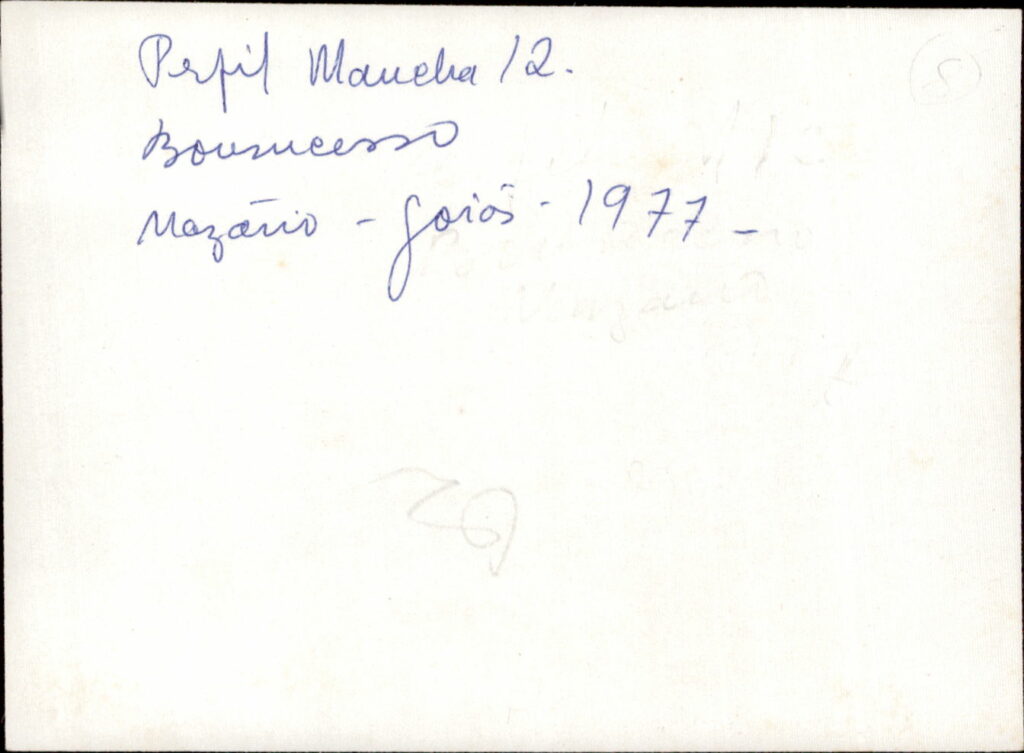 Perfil Mancha 12.
Bonsucesso
Nazário - Goiás - 1977 -
(5)